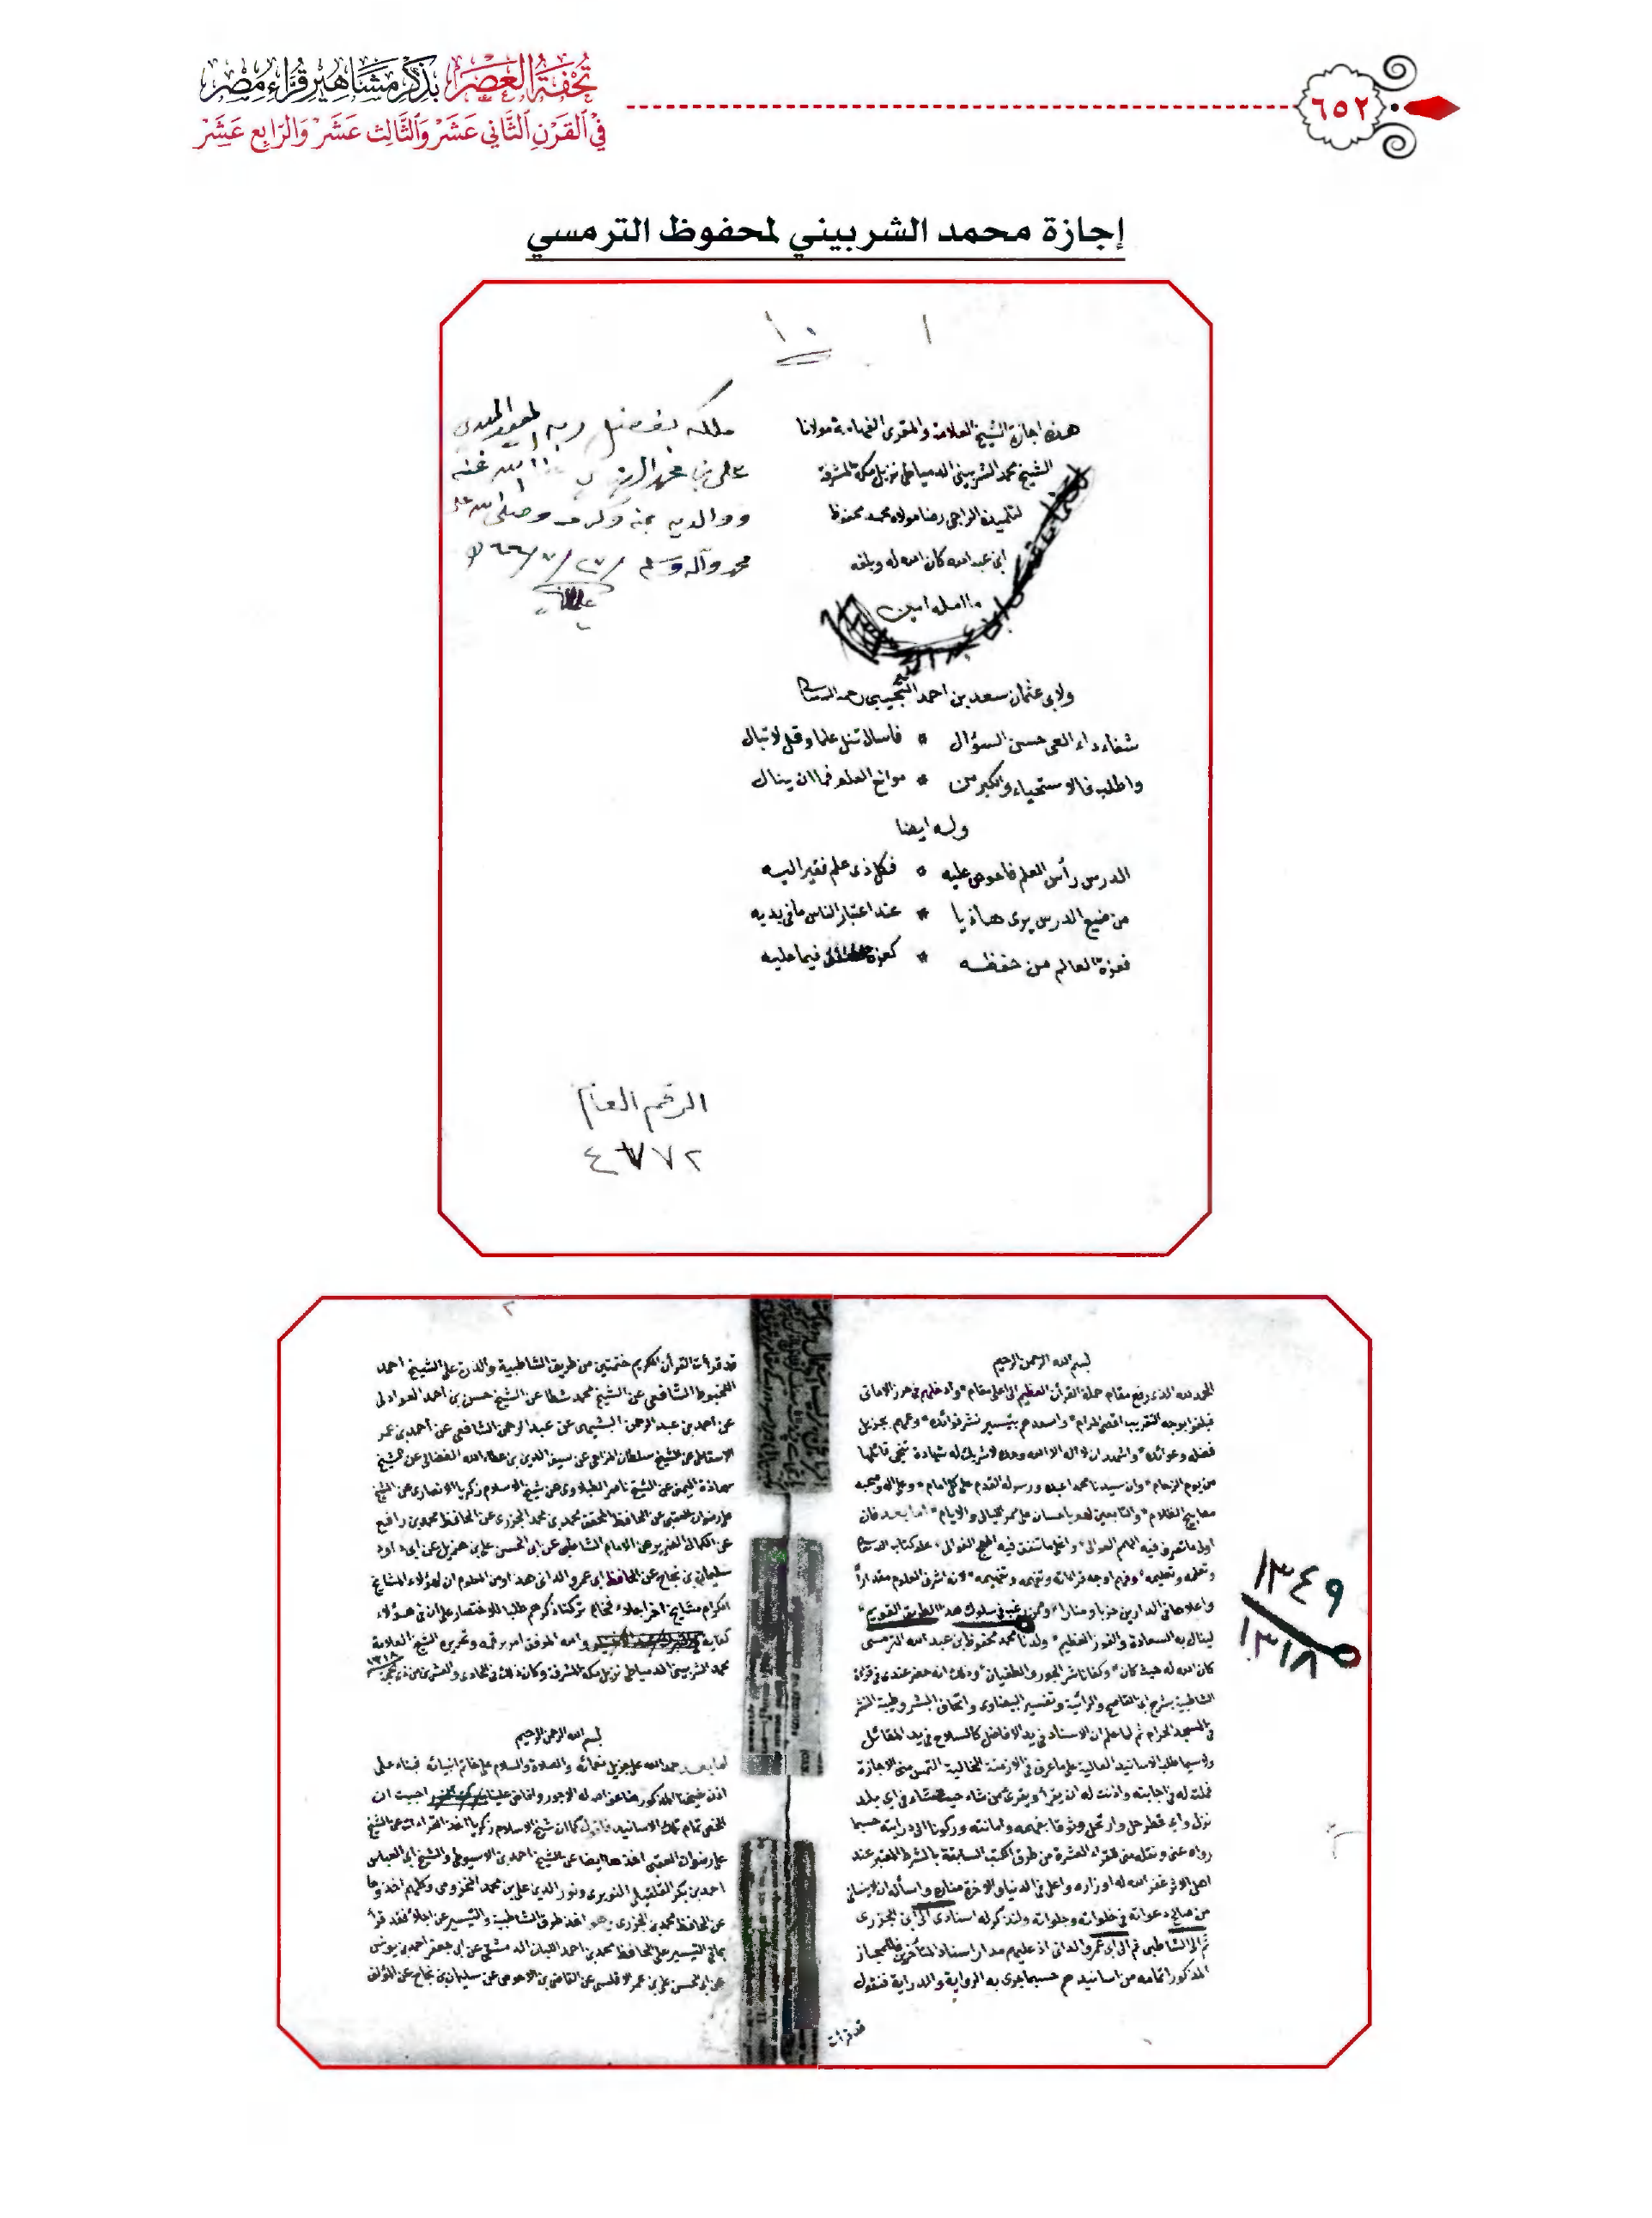 تُحْفَةُ الْعَصْرِ بِذِكْرِ مَشَاهِيرِ قُرَّاءِ مِصْرَ
فِي الْقَرْنِ الثَّانِي عَشَرَ وَالثَّالِثِ عَشَرَ وَالرَّابِعِ عَشَرَ
٦٥٢
إجازة محمد الشربيني لمحفوظ الترمسي
١
١٠
هذه اجازة الشيخ العلامة والمقرى الفهامة مولانا
الشيخ محمد الشربينى الدمياطى نزيل مكة المشرفة
لتلميذه الراجى رضا مولاه محمد محفوظ
ابن عبد الله كان الله له وبلغه
ما امله امين
ملكه بفضل ربه
على بن محمد
ووالديه بمنه وكرمه وصلى الله على
محمد وآله وسلم
ولابى عثمان سعد بن احمد التجيبى رحمه الله
شفاء داء العى حسن السؤال * فاسال تنل علما وقل لا تبال
واطلب فالاستحياء والكبر من * موانع العلم فما ان ينال
وله ايضا
الدرس رأس العلم فاحرص عليه * فكل ذى علم فقير اليه
من ضيع الدرس يرى هاذيا * عند اعتبار الناس ما فى يديه
فعزة العالم من حفظه * كعزة فيما عليه
الرقم العام
٤٧٧٢
بسم الله الرحمن الرحيم
الحمد لله الذى رفع مقام حملة القرآن العظيم الى اعلى مقام وادخلهم فى حرز الامانى
فبلغوا بوجه التقريب اقصى المرام واسعدهم بتيسير نشر فوائده وعمهم بجزيل
فضله وعوائده واشهد ان لا اله الا الله وحده لا شريك له شهادة تنجى قائلها
من يوم الزحام وان سيدنا محمدا عبده ورسوله المقدم على كل امام وعلى اله وصحبه
مصابيح الظلام والتابعين لهم باحسان على ممر الليالى والايام اما بعد فان
اولى ما تصرف فيه الهمم العوالى واغلى ما تنفق فيه المهج الغوال علم كتاب الله
وتعلمه وتعليمه وفهم اوجه قراءاته وتفهمه وتفهيمه لانه اشرف العلوم مقدارا
واعلاها فى الدارين ومنارا وممن رغب فى سلوك هذا الطريق القويم
لينال به السعادة والفوز العظيم ولدنا محمد محفوظ بن عبد الله الترمسى
كان الله له حيث كان وكفانا شر الجور والطغيان وذلك انه حضر عندى فى قراءة
الشاطبية بشرح ابن القاصح والرائية وتفسير البيضاوى واتحاف البشر وطيبة النشر
فى المسجد الحرام ثم لما علم ان الاسناد فى يد الافاضل كالسلاح فى يد المقاتل
ولا سيما طلب الاسانيد العالية على ما عرف فى الازمنة الخالية التمس منى الاجازة
فملت له فى اجابته واذنت له ان يقرأ ويقرئ من شاء حيث شاء فى اى بلد
نزل واى قطر حل وارتحل وثوقا بفهمه وامانته وركونا الى درايته حسبما
رواه عنى ونقله منى للقراء العشرة من طرق الكتب السابقة بالشرط المعتبر عند
اهل الاثر غفر الله له اوزاره واعلى فى الدنيا والاخرة مناره واسأله ان لا ينسانى
من صالح دعواته فى خلواته وجلواته ولنذكر له اسنادى الى ابن الجزرى
ثم الى الشاطبى ثم الى ابى عمرو الدانى اذ عليهم مدار اسناد المتأخرين
المذكور امامه من اسانيدهم حسبما جرى به الرواية والدراية فنقول
قد قرأت
١٣٤٩
١٣١٨
٢
قد قرأت القرآن الكريم ختمتين من طريق الشاطبية والدرة على الشيخ احمد
اللخبوط الشافعى عن الشيخ محمد شطا عن الشيخ حسن بن احمد العوادلى
عن احمد بن عبد الرحمن البشيهى عن عبد الرحمن الشافعى عن احمد بن عمر
الاسقاطى عن الشيخ سلطان المزاحى عن سيف الدين بن عطاء الله الفضالى عن الشيخ
شحاذة اليمنى عن الشيخ ناصر الطبلاوى عن شيخ الاسلام زكريا الانصارى عن الشيخ
على رضوان العقبى عن الحافظ المحقق محمد بن محمد الجزرى عن الحافظ محمد بن رافع
عن الكمال الضرير عن الامام الشاطبى عن ابى الحسن على بن هذيل عن ابى داود
سليمان بن نجاح عن الحافظ ابى عمرو الدانى هذا ومن المعلوم ان لهؤلاء المشايخ
الكرام مشايخ اخر اجلاء فخام تركنا ذكرهم طلبا للاختصار على ان فى هؤلاء
كفاية والله الموفق امر برقمه وتحريره الشيخ العلامة
محمد الشربينى الدمياطى نزيل مكة المشرفة وكان ذلك فى الحادى والعشرين من ذى الحجة ١٣١٨
بسم الله الرحمن الرحيم
اما بعد حمد الله على جزيل نعمائه والصلاة والسلام على خاتم انبيائه فبناء على
اذن شيخنا المذكور اجبت ان
الحق تمام تلك الاسانيد فاقول كما ان شيخ الاسلام زكريا اخذ القراءات عن الشيخ
على رضوان العقبى اخذها ايضا عن الشيخ احمد بن الاسيوطى والشيخ ابى العباس
احمد بن بكر القلقيلى النويرى ونور الدين على بن محمد المخزومى وكلهم اخذوها
عن الحافظ محمد بن الجزرى وهو اخذ طرق الشاطبية والتيسير عن اجلاء فقد قرأ
بما فى التيسير على الحافظ محمد بن احمد اللبان الدمشقى عن ابى جعفر احمد بن يوسف
عن ابى الحسن على بن عمر الاندلسى عن القاضى بن الاحوص عن سليمان بن نجاح عن المؤلف